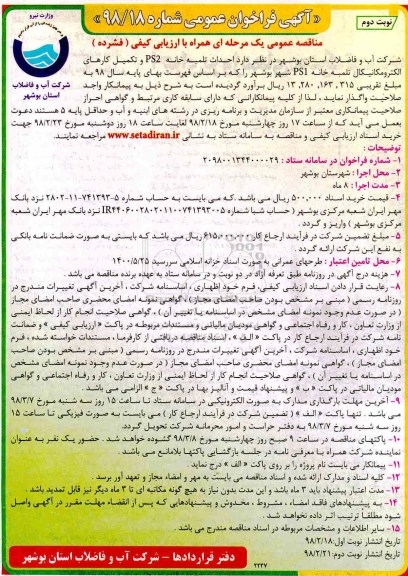 نوبت دوم
« آگهی فراخوان عمومی شماره ۹۸/۱۸ »
وزارت نیرو
شرکت آب و فاضلاب استان بوشهر
مناقصه عمومی یک مرحله ای همراه با ارزیابی کیفی ( فشرده )
شرکت آب و فاضلاب استان بوشهر در نظر دارد احداث تلمبه خانه PS2 و تکمیل کارهای
الکترومکانیکال تلمبه خانه PS1 شهر بوشهر را که بر اساس فهرست بهای پایه سال ۹۸ به
مبلغ تقریبی ۱۳,۲۸۰,۱۶۳,۳۱۵ ریال برآورد گردیده است به شرح ذیل به پیمانکار واجد
صلاحیت واگذار نماید ، لذا از کلیه پیمانکارانی که دارای سابقه کاری مرتبط و گواهی احراز
صلاحیت پیمانکاری معتبر از سازمان مدیریت و برنامه ریزی در رشته های ابنیه و آب و حداقل پایه ۵ هستند دعوت
بعمل می آید که از ساعت ۱۷ روز چهارشنبه مورخ ۹۸/۲/۱۸ لغایت ساعت ۱۸ روز دوشنبه مورخ ۹۸/۲/۲۳ جهت
خرید اسناد ارزیابی کیفی و مناقصه به سامانه ستاد به نشانی www.setadiran.ir مراجعه نمایند.
توضیحات :
۱- شماره فراخوان در سامانه ستاد : ۲۰۹۸۰۰۱۳۴۴۰۰۰۰۲۹
۲- محل اجرا : شهرستان بوشهر
۳- مدت اجرا : ۸ ماه
۴- قیمت خرید اسناد ۵۰۰,۰۰۰ ریال می باشد .که می بایست به حساب شماره ۵-۷۴۱۳۹۳-۱۱-۲۸۰۲ نزد بانک
مهر ایران شعبه مرکزی بوشهر ( حساب شبا شماره نزد بانک مهر ایران شعبه
مرکزی بوشهر ) واریز و گردد .
۵- مبلغ تضمین شرکت در فرآیند ارجاع کار ۶۱۵,۰۰۰,۰۰۰ ریال می باشد که بایستی به صورت ضمانت نامه بانکی
به نفع این شرکت ارائه گردد .
۶- محل تامین اعتبار : طرحهای عمرانی به صورت اسناد خزانه اسلامی سررسید ۱۴۰۰/۵/۲۵
۷- هزینه درج آگهی در روزنامه طبق تعرفه آزاد در دو نوبت و در سامانه ستاد به عهده برنده مناقصه می باشد .
۸- رعایت قرار دادن اسناد ارزیابی کیفی، فرم خود اظهاری ، اساسنامه شرکت ، آخرین آگهی تغییرات مندرج در
روزنامه رسمی ( مبنی بر مشخص بودن صاحب امضای مجاز ) ، گواهی نمونه امضای محضری صاحب امضای مجاز
( در صورت عدم وجود نمونه امضای مشخص در اساسنامه یا تغییر آن ) ، گواهی صلاحیت انجام کار از لحاظ ایمنی
از وزارت تعاون ، کار و رفاه اجتماعی و گواهی مودیان مالیاتی و مستندات مربوطه در پاکت « ارزیابی کیفی » و ضمانت
نامه شرکت در فرآیند ارجاع کار در پاکت « الف » ، اسناد مناقصه دریافتی از کارفرما ، مستندات خواسته شده ، فرم
خود اظهاری ، اساسنامه شرکت ، آخرین آگهی تغییرات مندرج در روزنامه رسمی ( مبنی بر مشخص بودن صاحب
امضای مجاز) ، گواهی نمونه امضای محضری صاحب امضای مجاز ( در صورت عدم وجود نمونه امضای مشخص
در اساسنامه یا تغییر آن ) ، گواهی صلاحیت انجام کار از لحاظ ایمنی از وزارت تعاون ، کار و رفاه اجتماعی و گواهی
مودیان مالیاتی در پاکت « ب » و پیشنهاد قیمت و آنالیز بها در پاکت « ج » الزامی می باشد .
۹- آخرین مهلت بارگذاری مدارک به صورت الکترونیکی در سامانه ستاد تا ساعت ۱۵ روز سه شنبه مورخ ۹۸/۳/۷
می باشد . تنها پاکت « الف » ( تضمین شرکت در فرآیند ارجاع کار ) می بایست به صورت فیزیکی تا ساعت ۱۵
روز سه شنبه مورخ ۹۸/۳/۷ به دفتر حراست و امور محرمانه شرکت تحویل گردد.
۱۰- پاکتهای مناقصه در ساعت ۹ صبح روز چهارشنبه مورخ ۹۸/۳/۸ گشوده خواهند شد . حضور یک نفر به عنوان
نماینده شرکت همراه با معرفی نامه در جلسه بازگشایی پاکتها بلامانع می باشد .
۱۱- پیمانکار می بایست نام پروژه را بر روی پاکت « الف » درج نماید .
۱۲- کلیه اسناد و مدارک ارائه شده و اسناد مناقصه می بایست به مهر و امضاء مجاز و تعهد آور برسد .
۱۳- مدت اعتبار پیشنهاد باید ۳ ماه باشد و این مدت بدون نیاز به هیچ گونه مکاتبه ای تا ۳ ماه دیگر نیز قابل تمدید باشد .
۱۴- به پیشنهادهای فاقد امضاء ، مشروط ، مخدوش و پیشنهادهایی که پس از انقضاء مهلت مقرر در آگهی واصل
شود مطلقا ترتیب اثر داده نخواهد شد .
۱۵- سایر اطلاعات و مشخصات مربوطه در اسناد مناقصه مندرج می باشد .
تاریخ انتشار نوبت اول: ۹۸/۲/۱۸
تاریخ انتشار نوبت دوم: ۹۸/۲/۲۱
۲۲۲۷
دفتر قراردادها – شرکت آب و فاضلاب استان بوشهر